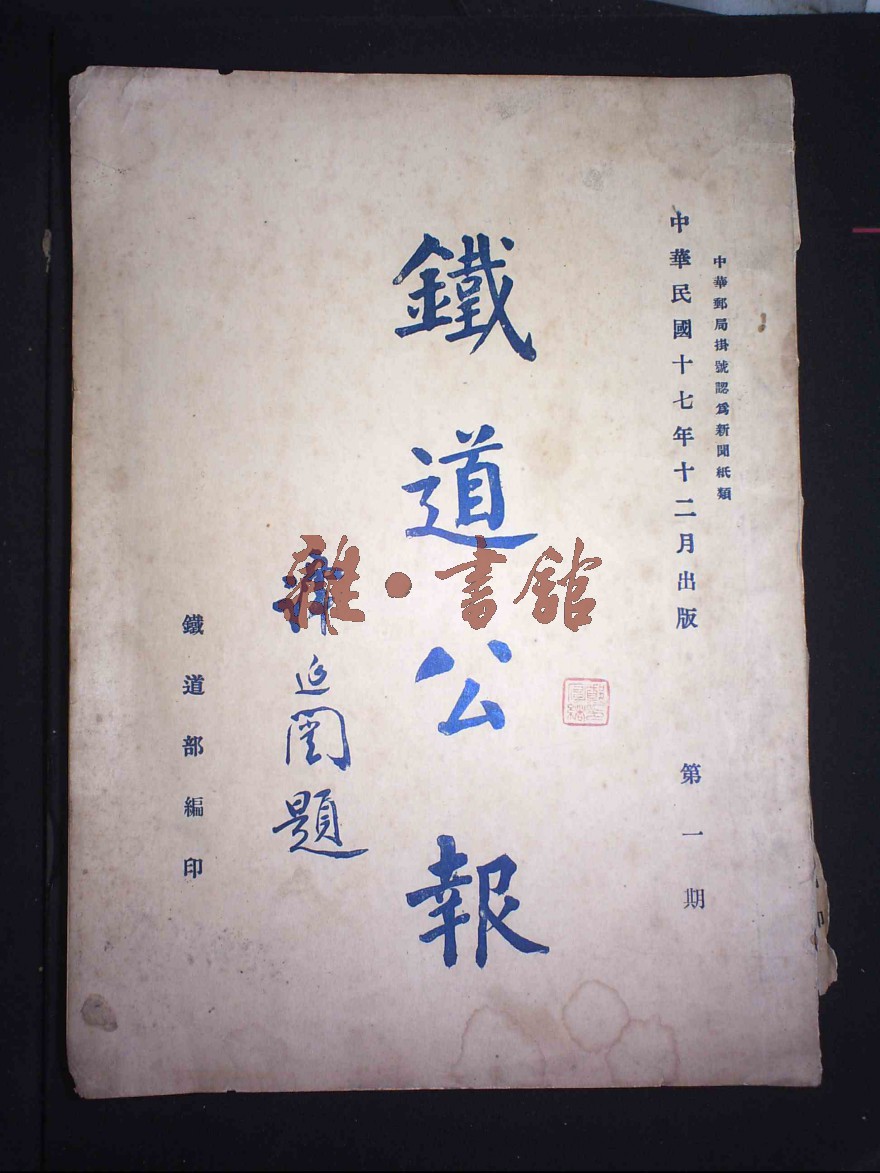 中華郵局掛號認爲新聞紙類
中華民國十七年十二月出版 第一期
鐵道公報
延闓題
鐵道部編印
雜·書舘